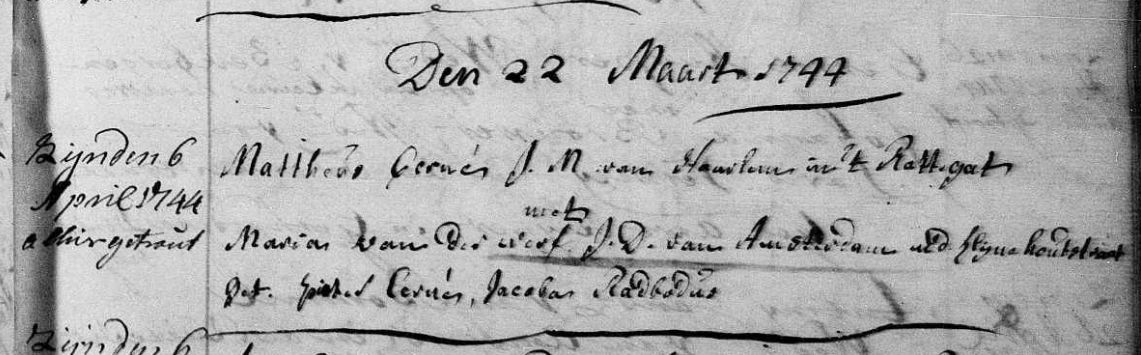 Den 22 Maart 1744
Zijnden 6
April 1744
alhier getrout
Mattheus Cernés J. M. van Haarlem in't Rattegat
met
Maria van der werf J. D. van Amsterdam in d Kleyne houtstraat
Get. Pieter Cernés, Jacobus Radbodus
Zijnden 6